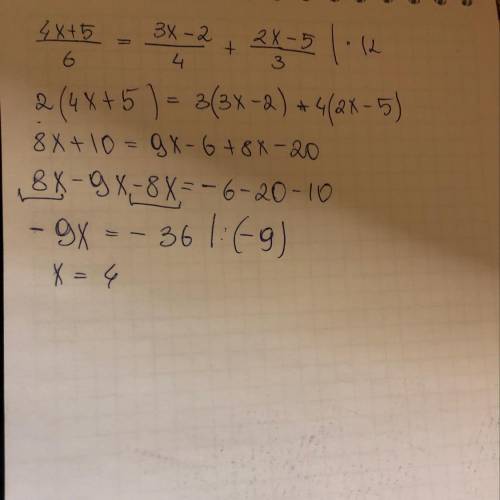 (4x+5)/6 = (3x-2)/4 + (2x-5)/3 | · 12
2(4x+5) = 3(3x-2) + 4(2x-5)
8x+10 = 9x-6+8x-20
8x-9x-8x = -6-20-10
-9x = -36 | :(-9)
x = 4